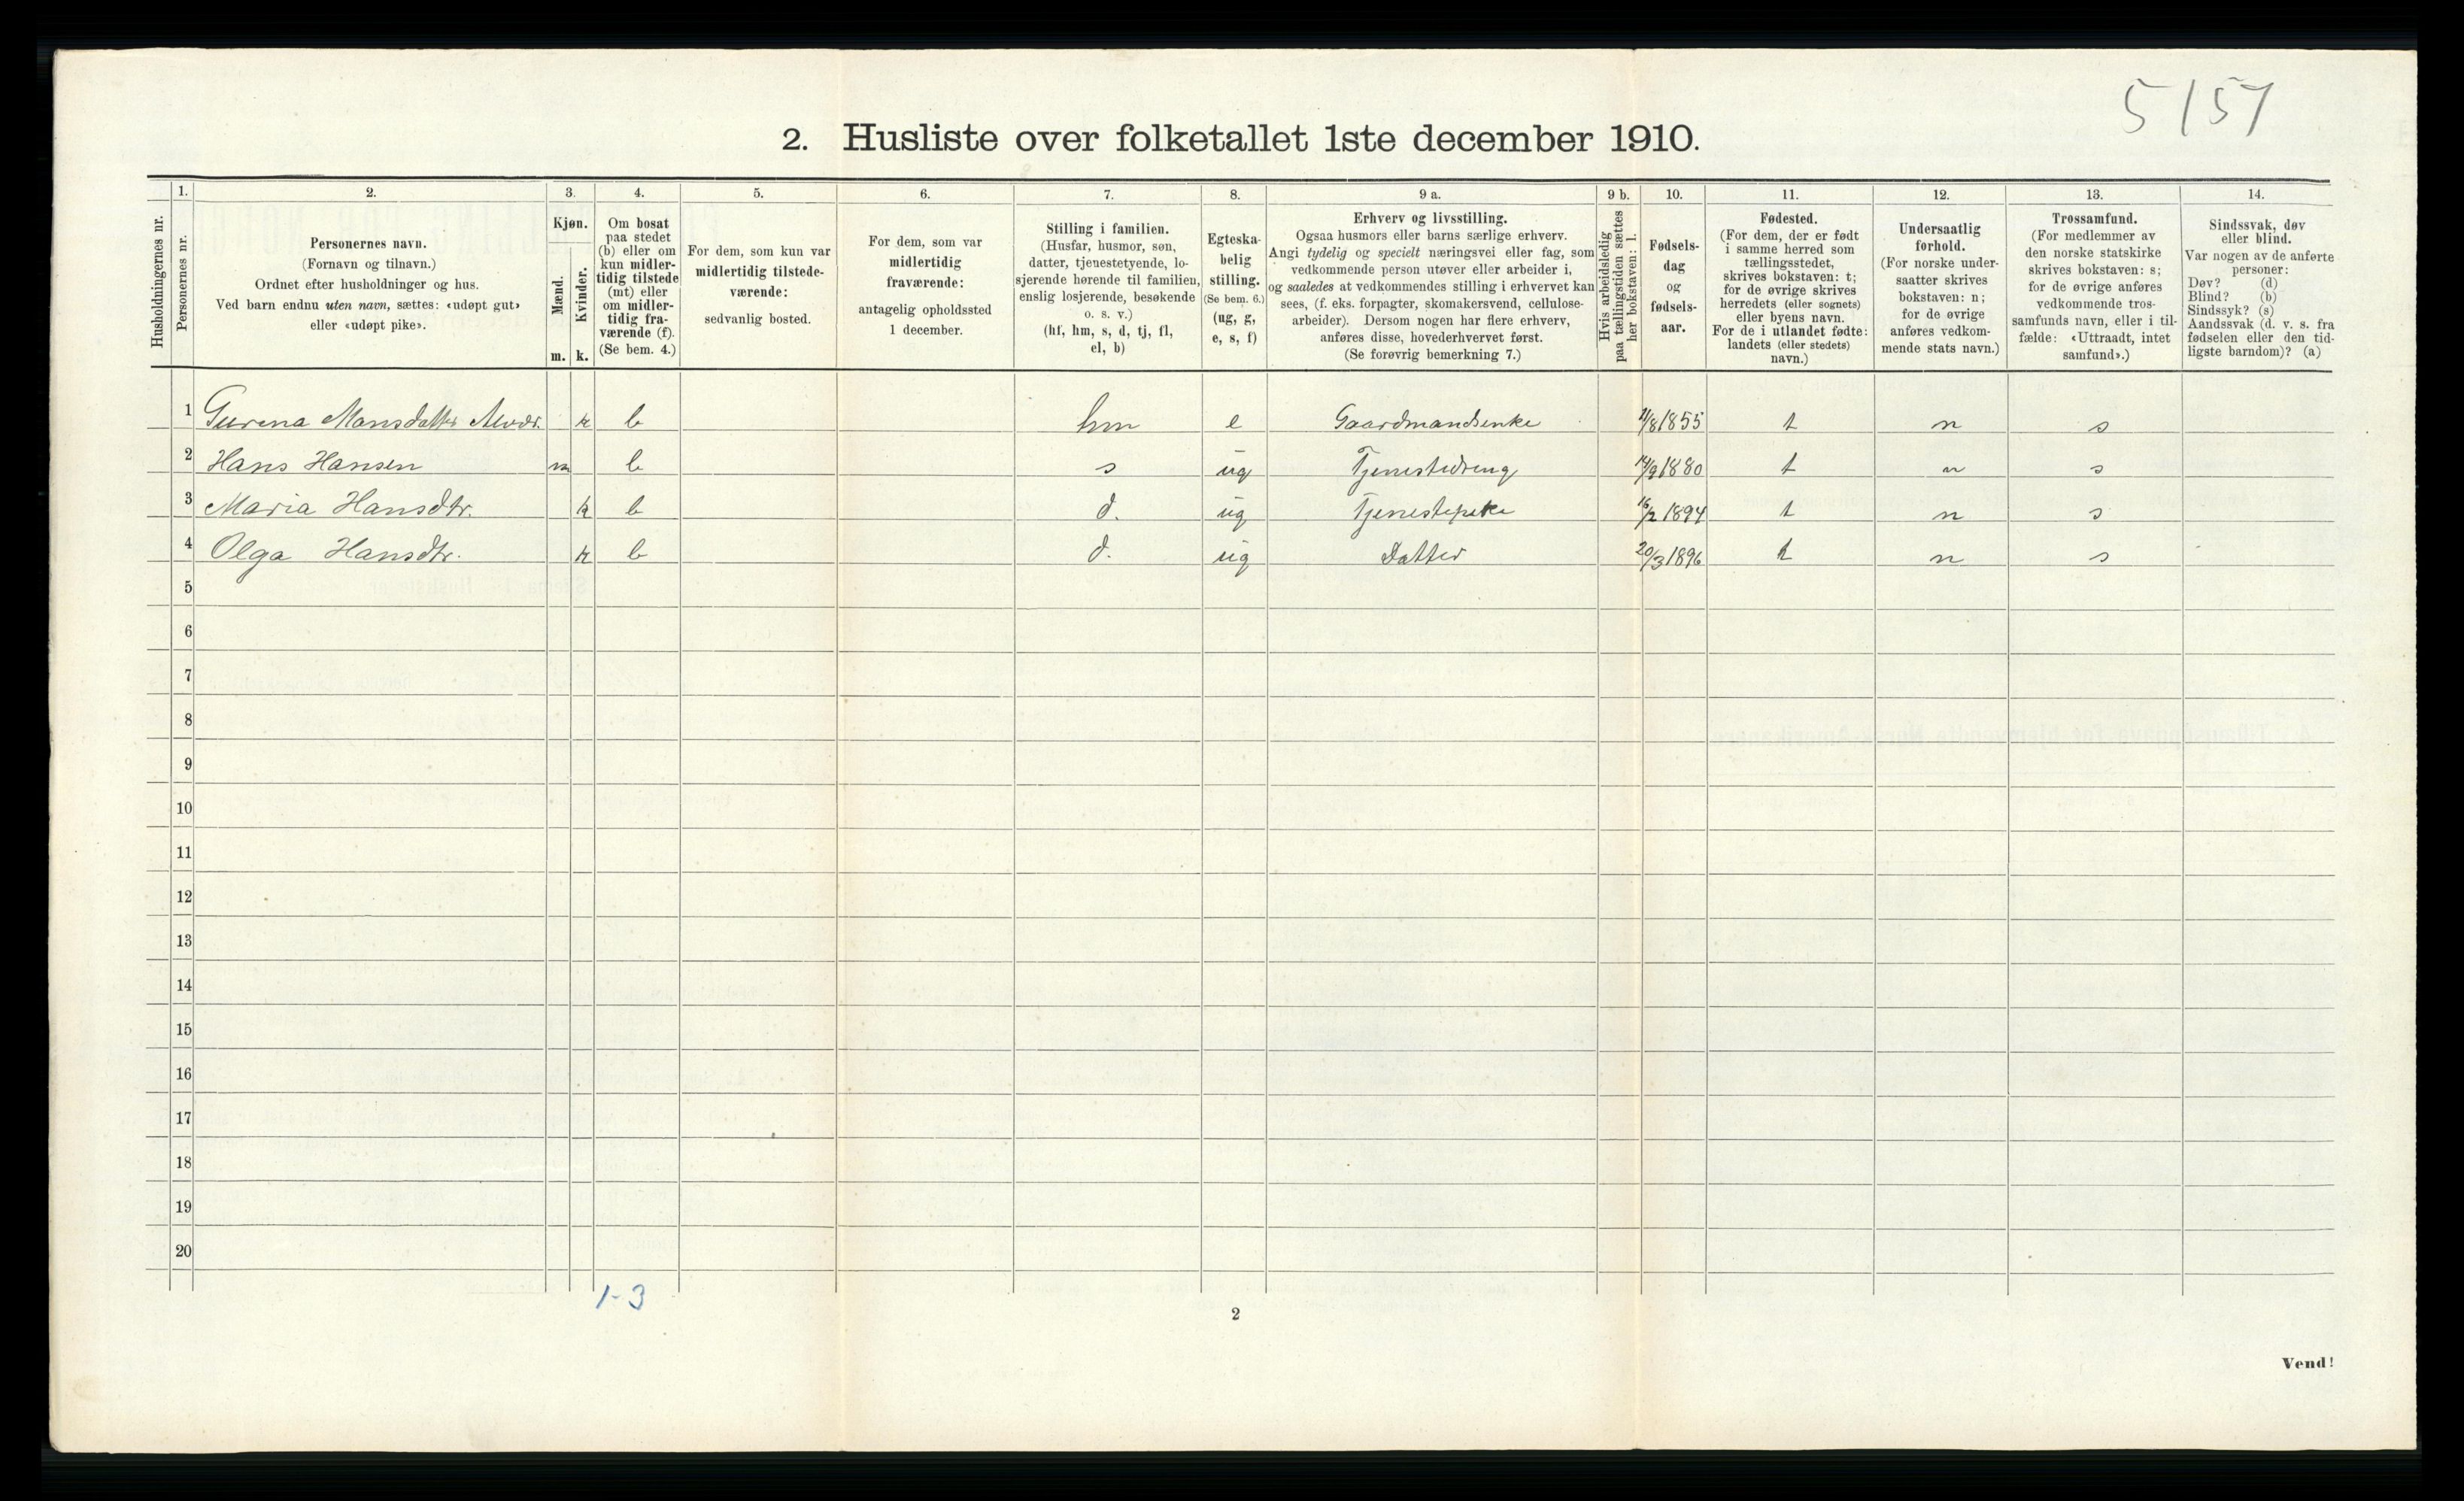 5157
2. Husliste over folketallet 1ste december 1910.
Husholdningernes nr.
1.
Personernes nr.
2.
Personernes navn.
(Fornavn og tilnavn.)
Ordnet efter husholdninger og hus.
Ved barn endnu uten navn, sættes: «udøpt gut»
eller «udøpt pike».
3.
Kjøn.
Mænd.
Kvinder.
m. k.
4.
Om bosat
paa stedet
(b) eller om
kun midler-
tidig tilstede
(mt) eller
om midler-
tidig fra-
værende (f).
(Se bem. 4.)
5.
For dem, som kun var
midlertidig tilstede-
værende:
sedvanlig bosted.
6.
For dem, som var
midlertidig
fraværende:
antagelig opholdssted
1 december.
7.
Stilling i familien.
(Husfar, husmor, søn,
datter, tjenestetyende, lo-
sjerende hørende til familien,
enslig losjerende, besøkende
o. s. v.)
(hf, hm, s, d, tj, fl,
el, b)
8.
Egteska-
belig
stilling.
(Se bem. 6.)
(ug, g,
e, s, f)
9 a.
Erhverv og livsstilling.
Ogsaa husmors eller barns særlige erhverv.
Angi tydelig og specielt næringsvei eller fag, som
vedkommende person utøver eller arbeider i,
og saaledes at vedkommendes stilling i erhvervet kan
sees, (f. eks. forpagter, skomakersvend, cellulose-
arbeider). Dersom nogen har flere erhverv,
anføres disse, hovederhvervet først.
(Se forøvrig bemerkning 7.)
9 b.
Hvis arbeidsledig
paa tællingstiden sættes
her bokstaven: l.
10.
Fødsels-
dag
og
fødsels-
aar.
11.
Fødested.
(For dem, der er født
i samme herred som
tællingsstedet,
skrives bokstaven: t;
for de øvrige skrives
herredets (eller sognets)
eller byens navn.
For de i utlandet fødte:
landets (eller stedets)
navn.)
12.
Undersaatlig
forhold.
(For norske under-
saatter skrives
bokstaven: n;
for de øvrige
anføres vedkom-
mende stats navn.)
13.
Trossamfund.
(For medlemmer av
den norske statskirke
skrives bokstaven: s;
for de øvrige anføres
vedkommende tros-
samfunds navn, eller i til-
fælde: «Uttraadt, intet
samfund».)
14.
Sindssvak, døv
eller blind.
Var nogen av de anførte
personer:
Døv? (d)
Blind? (b)
Sindssyk? (s)
Aandssvak (d. v. s. fra
fødselen eller den tid-
ligste barndom)? (a)
1 Gurena Monsdatter k b hm e Gaardmandsenke /8 1855 t n s
2 Hans Hansen m b s ug Tjenestedreng 14/9 1880 t n s
3 Maria Hansdtr. k b d. ug Tjenestepike 16/2 1894 t n s
4 Olga Hansdtr. k b d. ug Datter 20/3 1896 t n s
5
6
7
8
9
10
11
12
13
14
15
16
17
18
19
20
1-3
2
Vend!